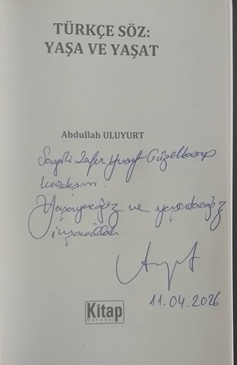 TÜRKÇE SÖZ:
YAŞA VE YAŞAT
Abdullah ULUYURT
Sevgili Zafer Yusuf Güzelkasap
kardeşim.
Yaşayacağız ve yaşatacağız
inşaallah
Kitap
11.04.2026